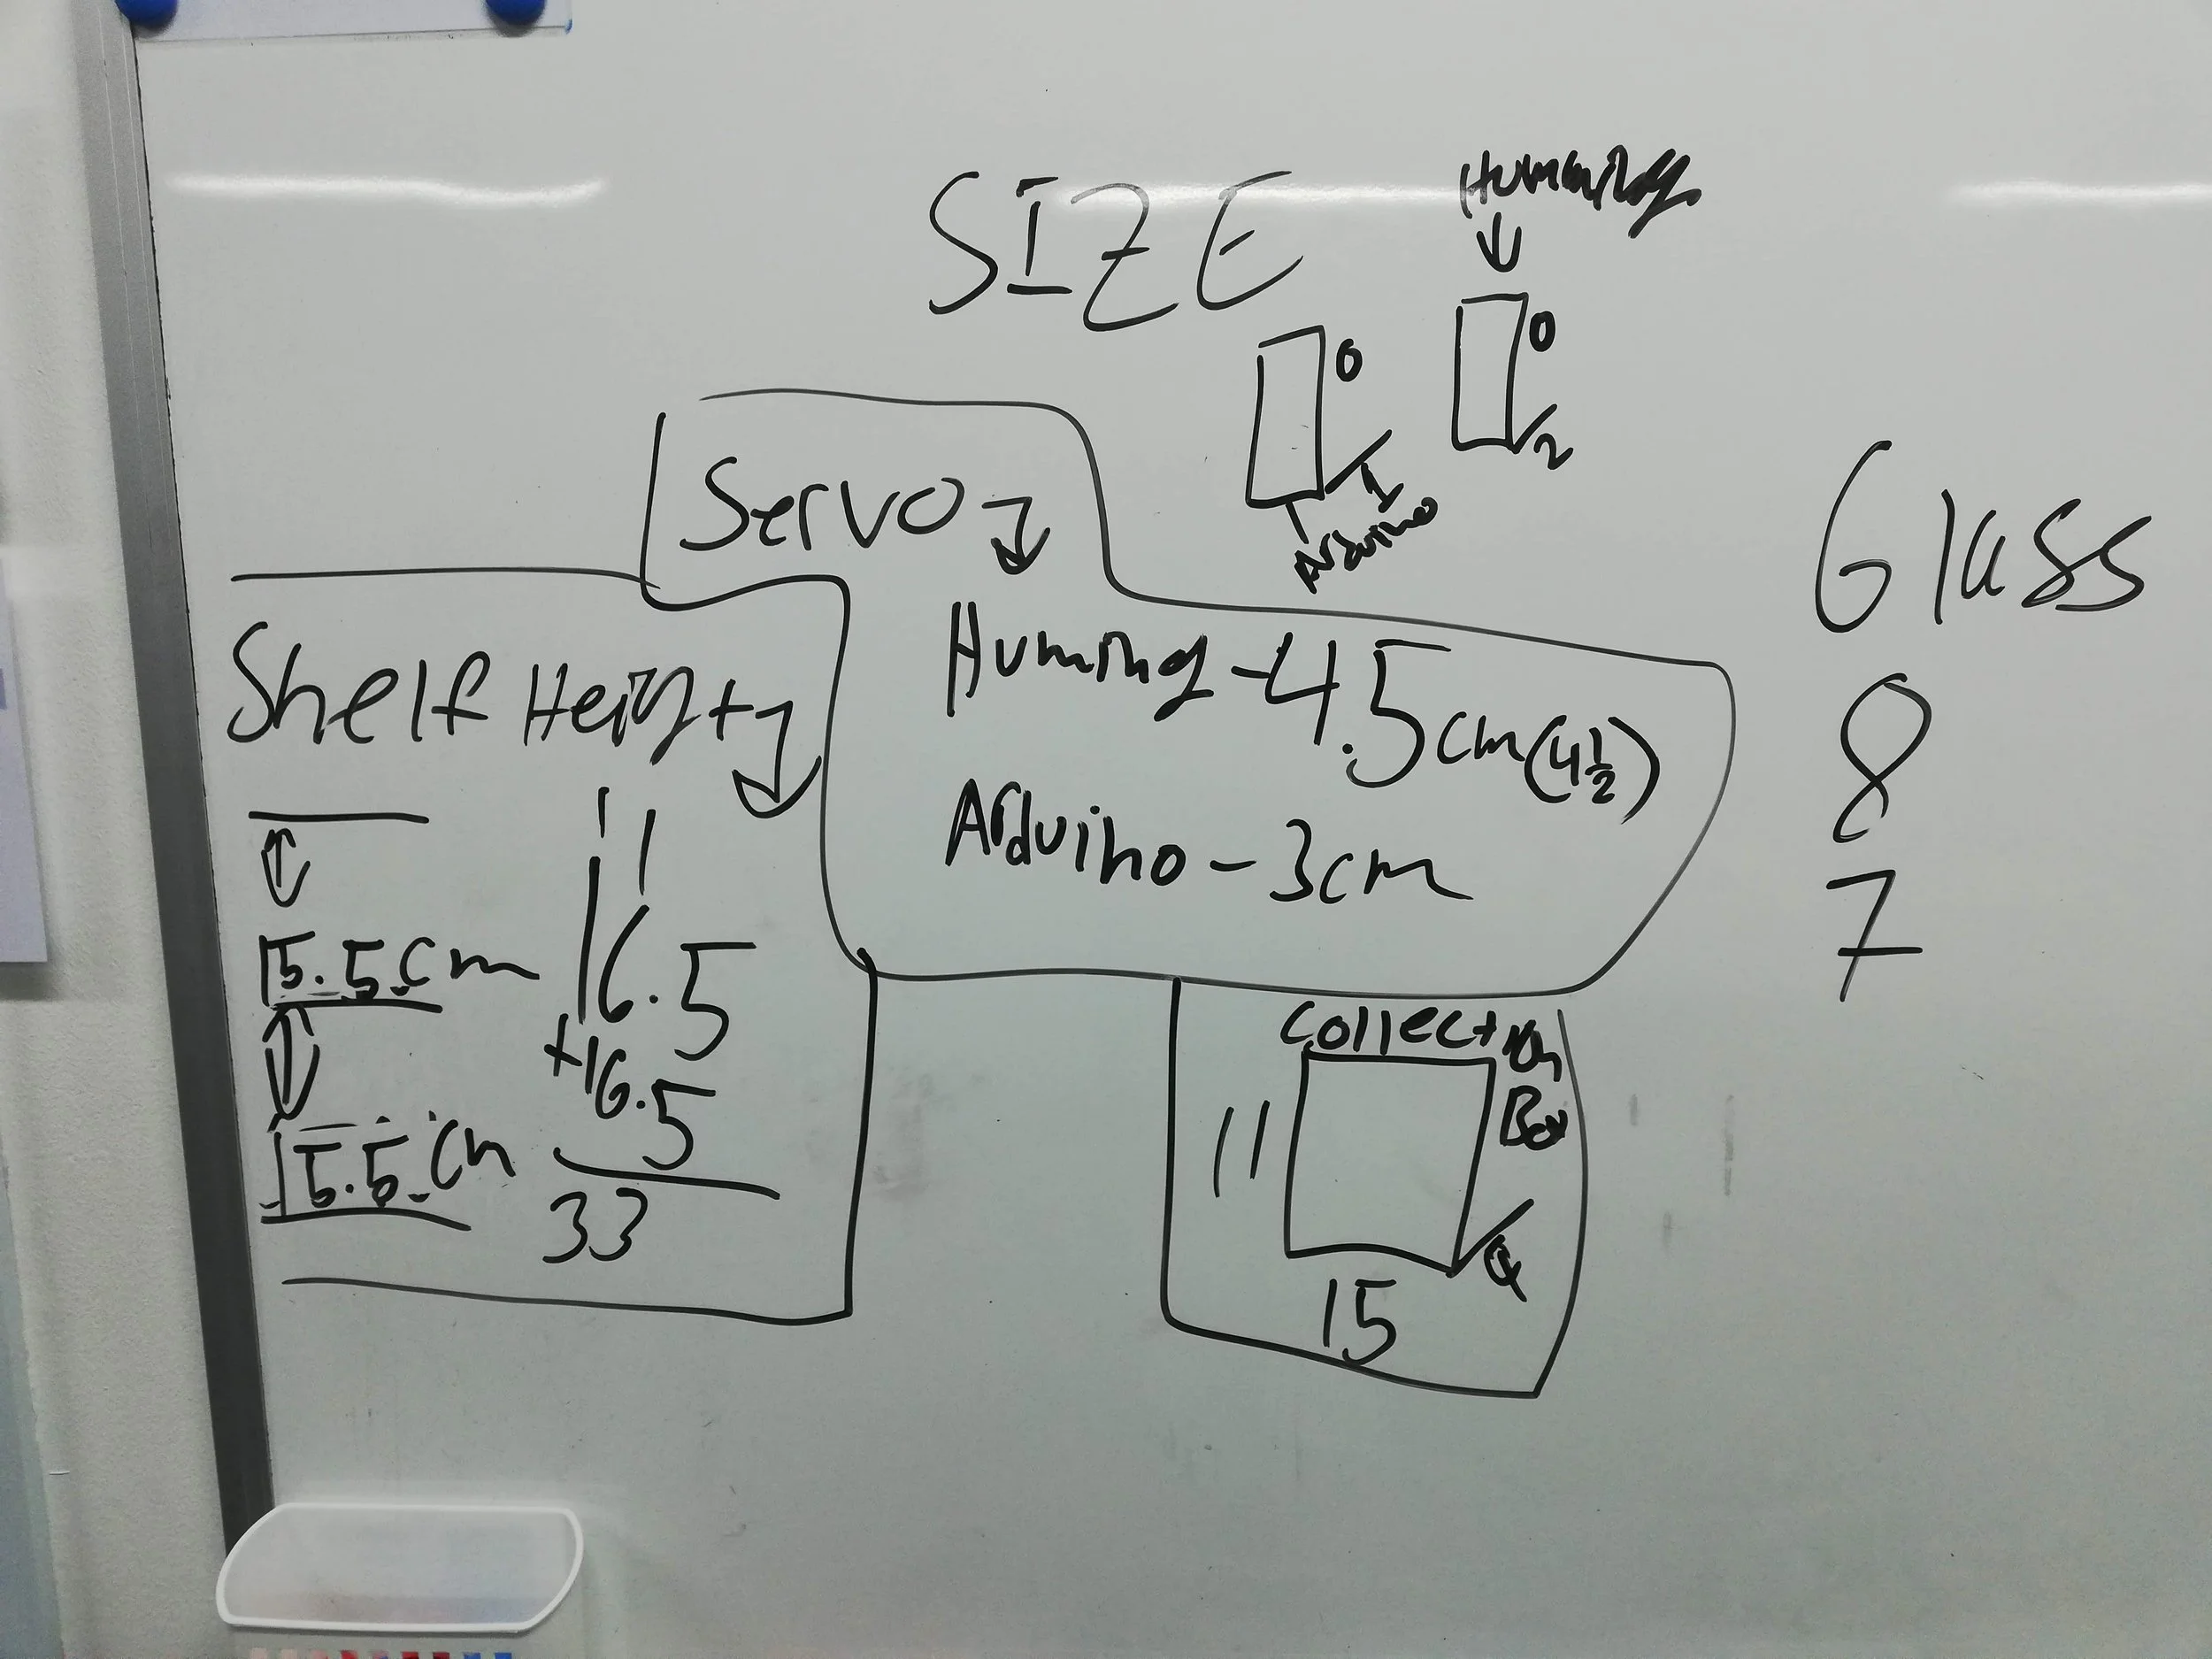 SIZE
0
0
2
1
Arduino
Servo
Glass
8
7
Huming - 4.5cm (4½)
Arduino - 3cm
Shelf Height
1 1
16.5
+16.5
33
15.5cm
15.5cm
Collection
Box
11
15